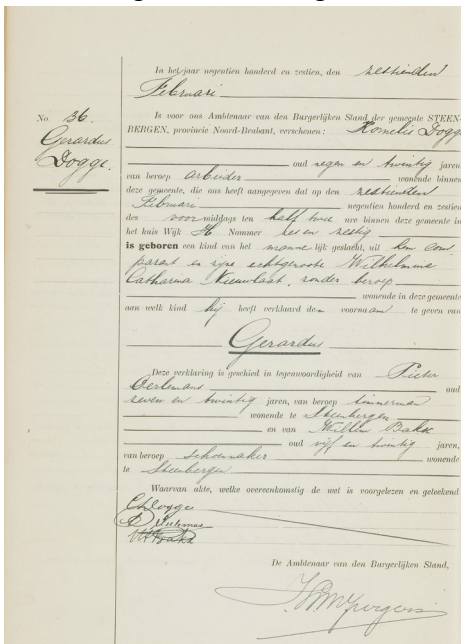 In het jaar negentien honderd en zestien, den zestienden
Februari
No. 36.
Gerardus
Dogge.
Is voor ons Ambtenaar van den Burgerlijken Stand der gemeente STEEN-
BERGEN, provincie Noord-Brabant, verschenen: Kornelis Dogge
oud negen en twintig jaren
van beroep arbeider wonende binnen
deze gemeente, die ons heeft aangegeven dat op den zestienden
Februari negentien honderd en zestien
des voormiddags ten half twee ure binnen deze gemeente in
het huis Wijk H Nummer zes en zestig
is geboren een kind van het mannelijk geslacht, uit hem com
parant en zijne echtgenoote Wilhelmina
Catharina Nieuwlaat, zonder beroep
wonende in deze gemeente
aan welk kind hij heeft verklaard den voornaam te geven van
Gerardus
Deze verklaring is geschied in tegenwoordigheid van Pieter
Oerlemans oud
zeven en twintig jaren, van beroep timmerman
wonende te Steenbergen
en van Willem Bakx
oud vijf en twintig jaren,
van beroep schoenmaker wonende
te Steenbergen
Waarvan akte, welke overeenkomstig de wet is voorgelezen en geteekend
C Dogge
P Oerlemans
W Bakx
De Ambtenaar van den Burgerlijken Stand,